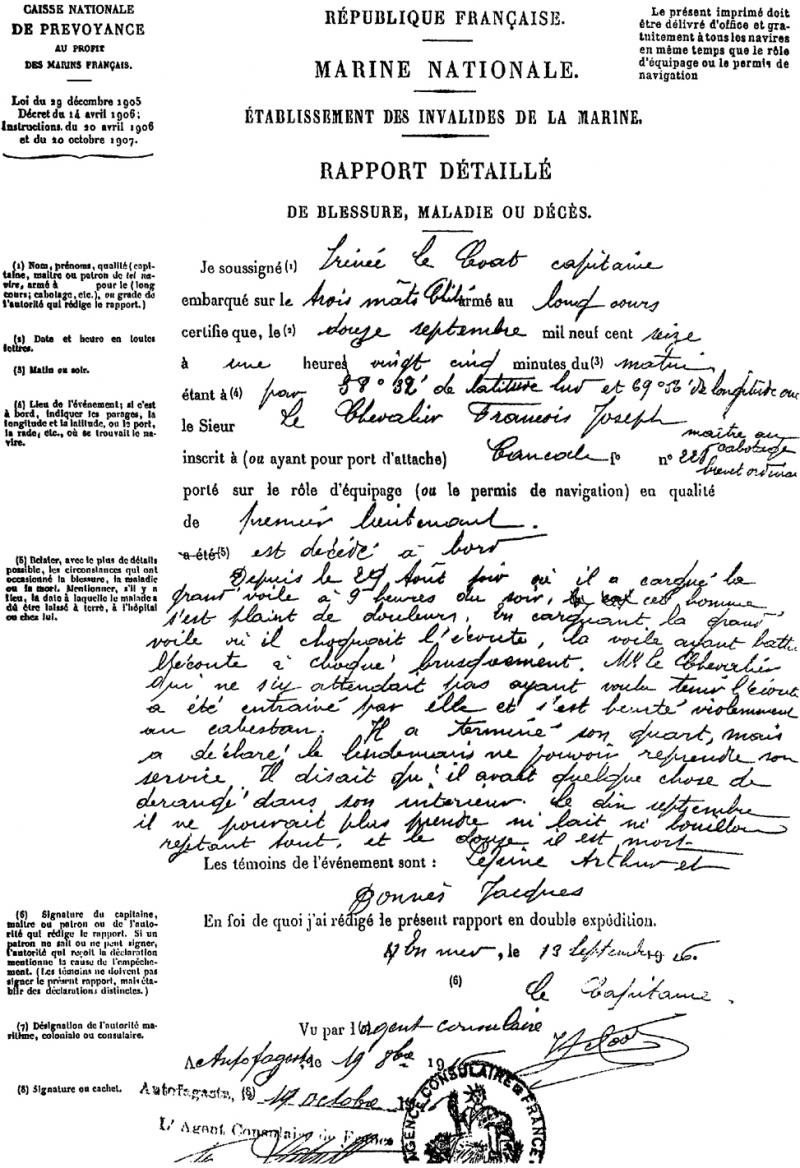 CAISSE NATIONALE
DE PREVOYANCE
AU PROFIT
DES MARINS FRANÇAIS.
Loi du 29 décembre 1905
Décret du 14 avril 1906;
Instructions. du 20 avril 1906
et du 20 octobre 1907.
RÉPUBLIQUE FRANÇAISE.
MARINE NATIONALE.
ÉTABLISSEMENT DES INVALIDES DE LA MARINE.
RAPPORT DÉTAILLÉ
DE BLESSURE, MALADIE OU DÉCÈS.
Le présent imprimé doit
être délivré d'office et gra-
tuitement à tous les navires
en même temps que le rôle
d'équipage ou le permis de
navigation
(1) Nom, prénoms, qualité (capi-
taine, maître ou patron de tel na-
vire, armé à pour le (long
cours; cabotage, etc.), ou grade de
l'autorité qui rédige le rapport.)
(2) Date et heure en toutes
lettres.
(3) Matin ou soir.
(4) Lieu de l'événement; si c'est
à bord, indiquer les parages, la
longitude et la latitude, ou le port,
la rade, etc., où se trouvait le na-
vire.
(5) Relater, avec le plus de détails
possible, les circonstances qui ont
occasionné la blessure, la maladie
ou la mort. Mentionner, s'il y a
lieu, la date à laquelle le malade a
dû être laissé à terre, à l'hôpital
ou chez lui.
(6) Signature du capitaine,
maître ou patron ou de l'auto-
rité qui rédige le rapport. Si un
patron ne sait ou ne peut signer,
l'autorité qui reçoit la déclaration
mentionne la cause de l'empêche-
ment. (Les témoins ne doivent pas
signer le présent rapport, mais éta-
blir des déclarations distinctes.)
(7) Désignation de l'autorité ma-
ritime, coloniale ou consulaire.
(8) Signature ou cachet.
Je soussigné (1) Irénée Le Coat capitaine
embarqué sur le trois mâts armé au long cours
certifie que, le (2) douze septembre mil neuf cent seize
à une heures vingt cinq minutes du (3) matin,
étant à (4) par 58° 32' de latitude Sud et 69° 56' de longitude oue
le Sieur Le Chevalier François Joseph
maître au
cabotage
inscrit à (ou ayant pour port d'attache) Cancale fo n° 225
brevet ordinai
porté sur le rôle d'équipage (ou le permis de navigation) en qualité
de premier lieutenant.
a été (5) est décédé à bord
Depuis le 29 Août soir où il a cargué la
grand'voile à 9 heures du soir, cet homme
s'est plaint de douleurs. En carguant la grand
voile où il choquait l'écoute, la voile ayant battu
l'écoute à choqué brusquement. Mr Le Chevalier
qui ne s'y attendait pas ayant voulu tenir l'écoute
a été entrainé par elle et s'est heurté violemment
au cabestan. Il a terminé son quart, mais
a déclaré le lendemain ne pouvoir reprendre son
service. Il disait qu'il avait quelque chose de
derangé dans son intérieur. Le dix septembre
il ne pouvait plus prendre ni lait ni bouillon
rejetant tout, et le douze il est mort
Les témoins de l'événement sont : Lepine Arthur et
Bonnes Jacques
En foi de quoi j'ai rédigé le présent rapport en double expédition.
En mer, le 13 Septembre 16.
(6) Le Capitaine.
Vu par l'Agent consulaire
A Antofagasta, le 19 8bre 1916
Antofagasta, (8) 19 octobre
L'Agent Consulaire de France
AGENCE CONSULAIRE DE FRANCE